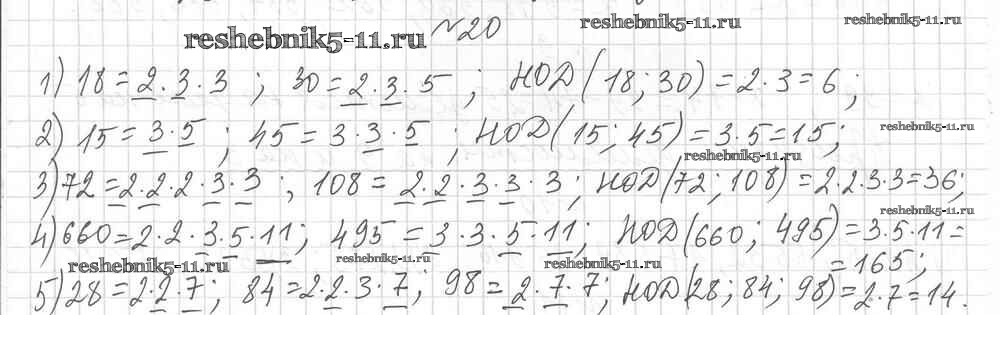 №20
reshebnik5-11.ru
reshebnik5-11.ru
reshebnik5-11.ru
1) 18 = 2 · 3 · 3 ; 30 = 2 · 3 · 5 ; НОД (18; 30) = 2 · 3 = 6 ;
2) 15 = 3 · 5 ; 45 = 3 · 3 · 5 ; НОД (15; 45) = 3 · 5 = 15 ;
reshebnik5-11.ru
reshebnik5-11.ru
3) 72 = 2 · 2 · 2 · 3 · 3 ; 108 = 2 · 2 · 3 · 3 · 3 ; НОД (72; 108) = 2 · 2 · 3 · 3 = 36 ;
reshebnik5-11.ru
4) 660 = 2 · 2 · 3 · 5 · 11 ; 495 = 3 · 3 · 5 · 11 ; НОД (660; 495) = 3 · 5 · 11 =
= 165 ;
reshebnik5-11.ru
reshebnik5-11.ru
reshebnik5-11.ru
5) 28 = 2 · 2 · 7 ; 84 = 2 · 2 · 3 · 7 ; 98 = 2 · 7 · 7 ; НОД (28; 84; 98) = 2 · 7 = 14 .